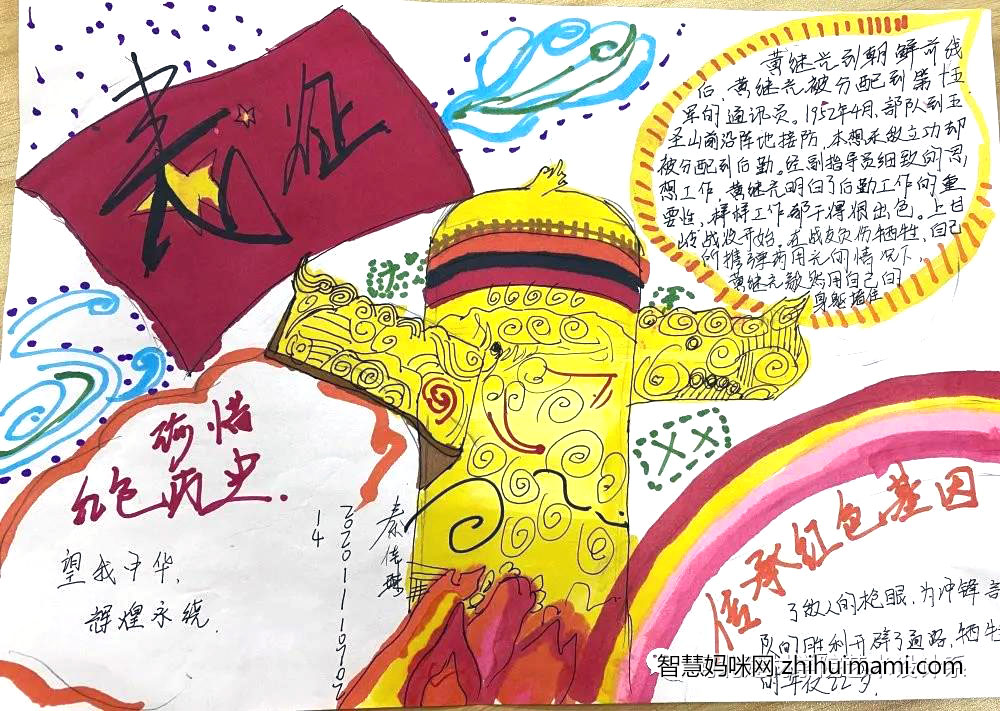 表征
黄继光到朝鲜前线
后,黄继光被分配到第十五
军的通讯员。1952年4月,部队到五
圣山前沿阵地接防,本想杀敌立功却
被分配到后勤。经副指导员细致的思
想工作,黄继光明白了后勤工作的重
要性,样样工作都干得很出色。上甘
岭战役开始,在战友负伤牺牲,自己
的携弹药用光的情况下,
黄继光毅然用自己的
身躯堵住
珍惜
红色历史.
望我中华,
辉煌永续.
秦佳琳
2020110702
14
传承红色基因
了敌人的枪眼,为冲锋部
队的胜利开辟了道路,牺牲
的年仅22岁.
智慧妈咪网 zhihuimami.com